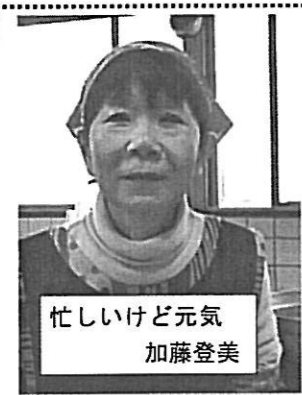 忙しいけど元気
加藤登美